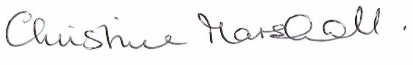 Christine Marshall.